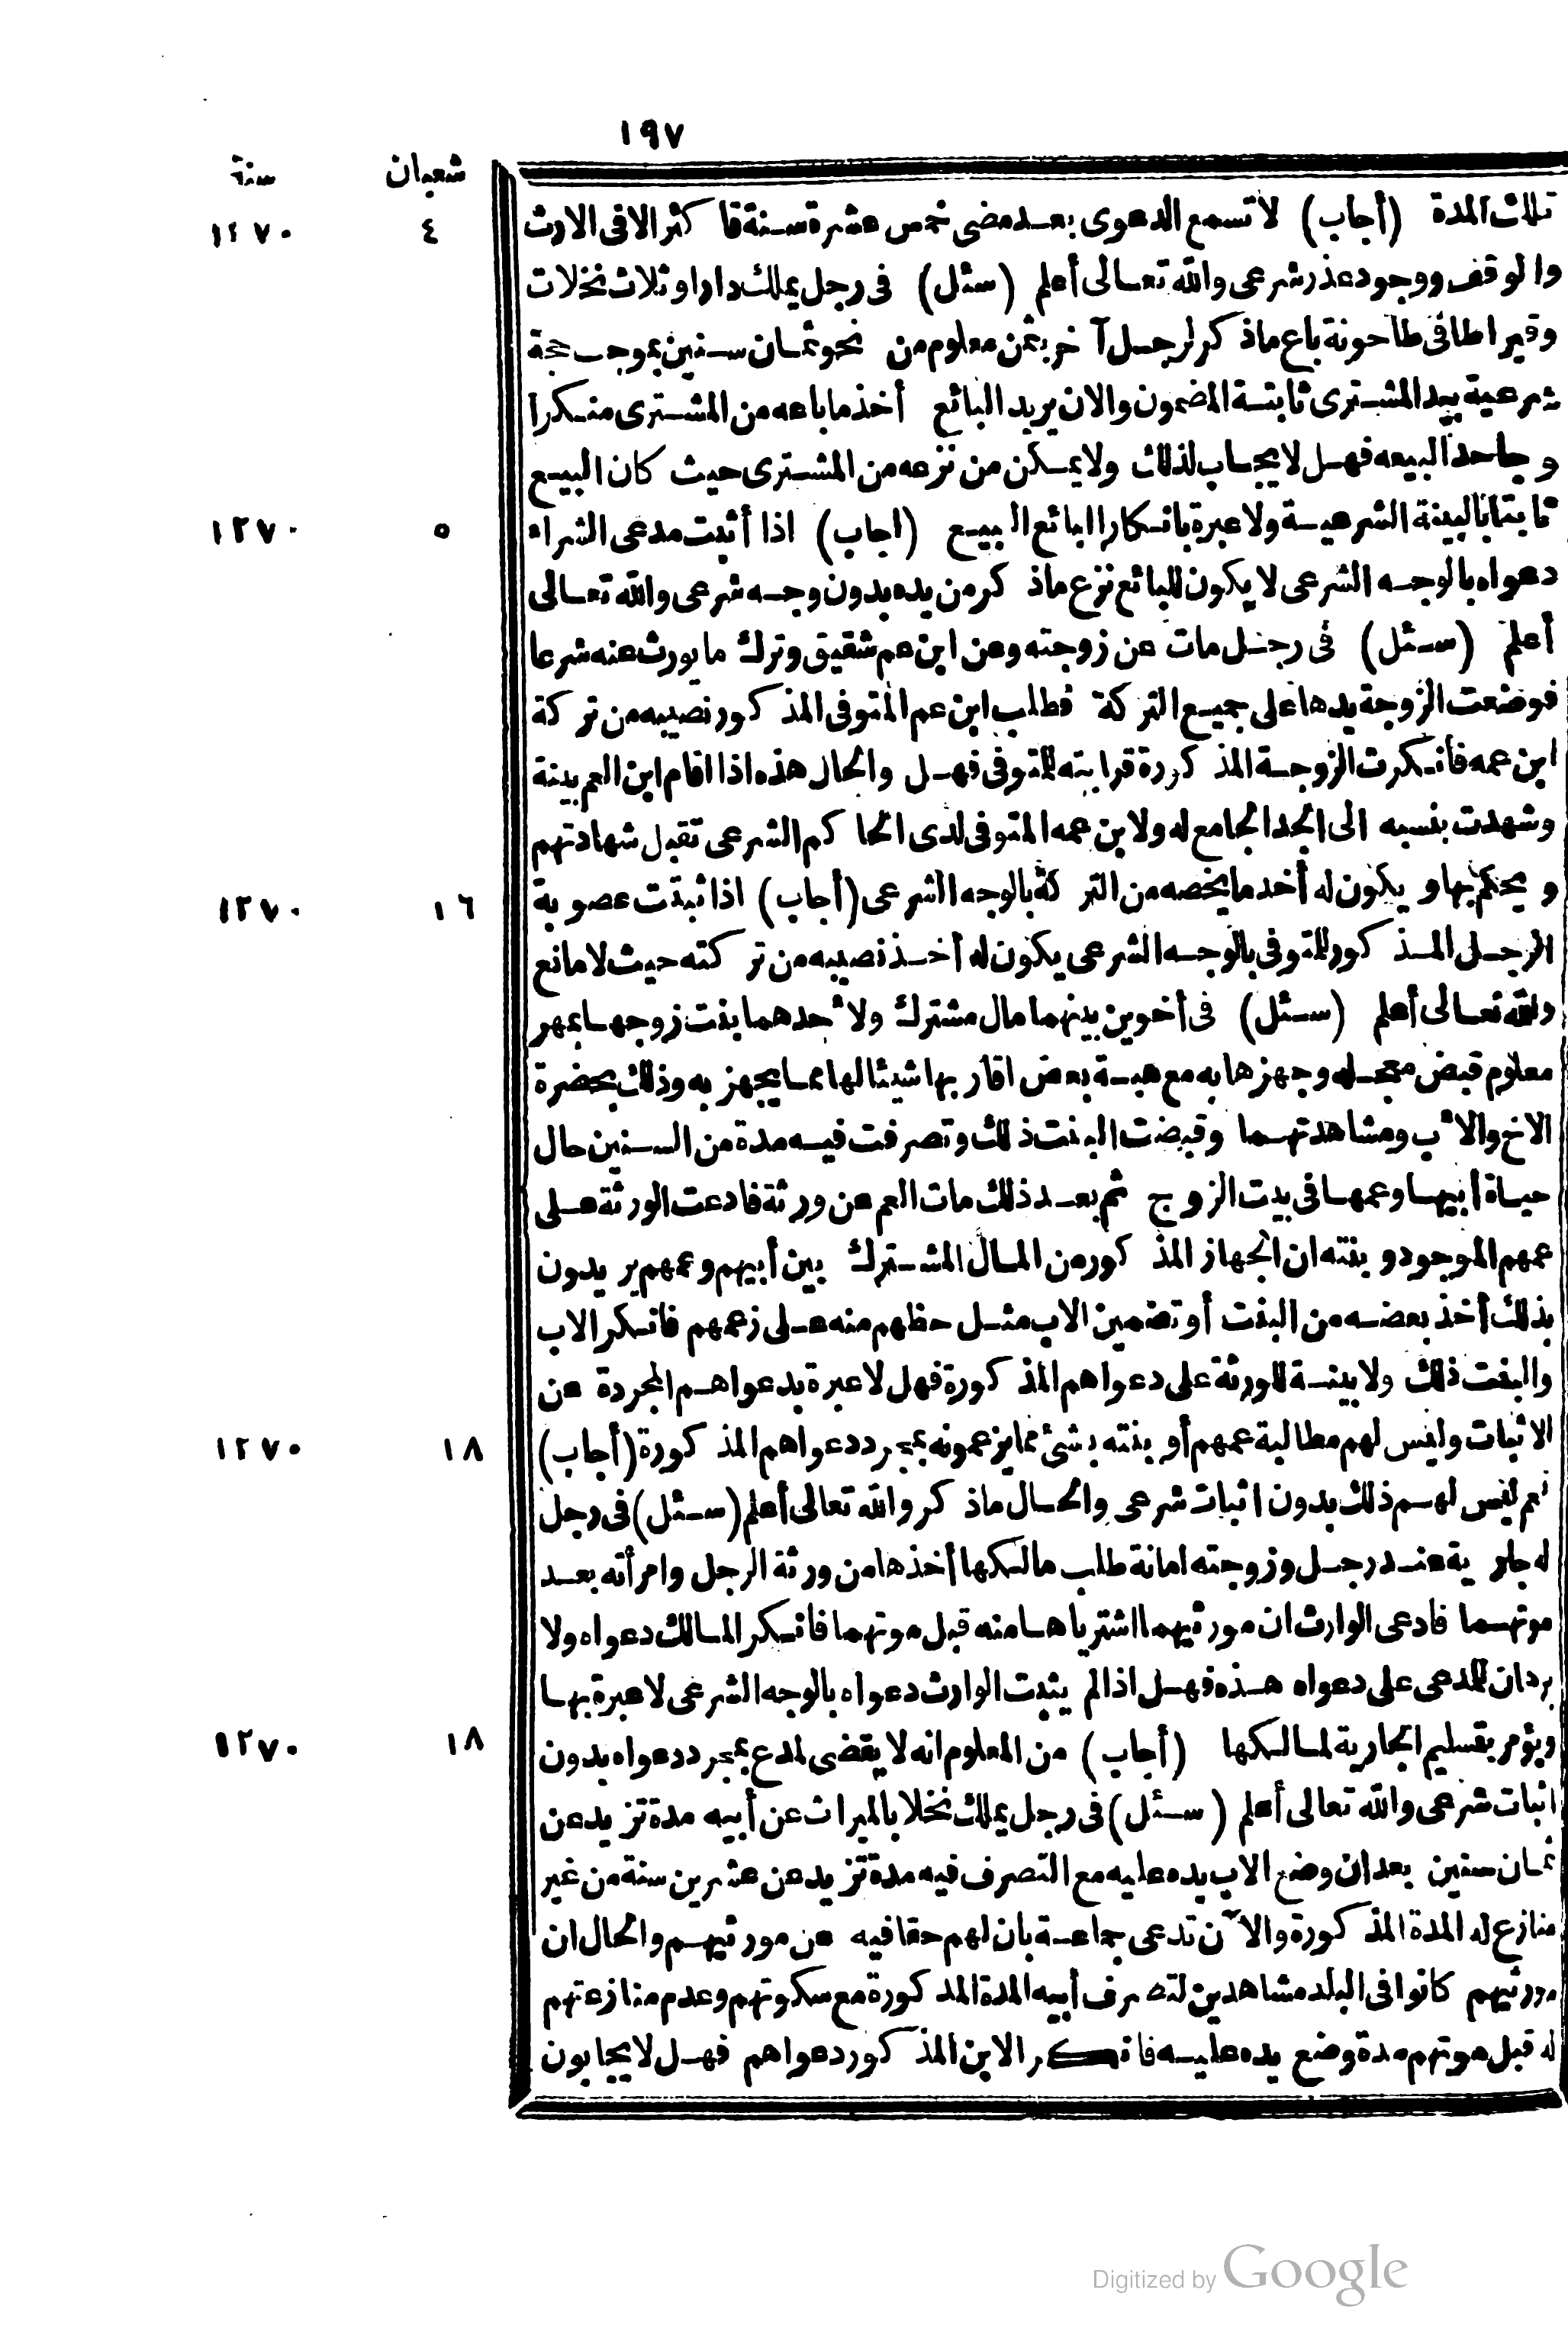 ١٩٧
شعبان سنة
تلك المدة (أجاب) لا تسمع الدعوى بعد مضى خمس عشرة سنة فا كثر الا فى الارث ٤ ١٢٧٠
والوقف ووجود عذر شرعى والله تعالى أعلم (سئل) فى رجل يملك دارا وثلاث نخلات
وقيراطا فى طاحونة باع ماذكر لرجل آخر بثمن معلوم من نحو ثمان سنين بموجب حجة
شرعية بيد المشترى ثابتة المضمون والان يريد البائع أخذ ما باعه من المشترى منكرا
وجاحدا لبيعه فهل لا يجاب لذلك ولا يمكن من نزعه من المشترى حيث كان البيع
ثابتا بالبينة الشرعية ولا عبرة بانكار البائع البيع (اجاب) اذا أثبت مدعى الشراء ٥ ١٢٧٠
دعواه بالوجه الشرعى لا يكون للبائع نزع ماذكر من يده بدون وجه شرعى والله تعالى
أعلم (سئل) فى رجل مات عن زوجته وعن ابن عم شقيق وترك ما يورث عنه شرعا
فوضعت الزوجة يدها على جميع التركة فطلب ابن عم المتوفى المذكور نصيبه من تركة
ابن عمه فأنكرت الزوجة المذكورة قرابته للتوفى فهل والحال هذه اذا اقام ابن العم بينة
وشهدت بنسبه الى الجد الجامع له ولابن عمه المتوفى لدى الحاكم الشرعى تقبل شهادتهم
ويحكم بها ويكون له أخذ ما يخصه من التركة بالوجه الشرعى (أجاب) اذا ثبتت عصوبة ١٦ ١٢٧٠
الرجل المذكور للتوفى بالوجه الشرعى يكون له أخذ نصيبه من تركته حيث لا مانع
والله تعالى أعلم (سئل) فى أخوين بينهما مال مشترك ولأحدهما بنت زوجها بمهر
معلوم قبض معجله وجهزها به مع هبة بعض اقاربها شيئا لها مما يجهز به وذلك بحضرة
الاخ والأب ومشاهدتهما وقبضت البنت ذلك وتصرفت فيه مدة من السنين حال
حياة أبيها وعمها فى بيت الزوج ثم بعد ذلك مات العم عن ورثة فادعت الورثة على
عمهم الموجود وبنته ان الجهاز المذكور من المال المشترك بين أبيهم وعمهم يريدون
بذلك أخذ بعضه من البنت أو تضمين الاب مثل حظهم منه على زعمهم فانكر الاب
والبنت ذلك ولا بينة للورثة على دعواهم المذكورة فهل لا عبرة بدعواهم المجردة عن
الاثبات وليس لهم مطالبة عمهم أو بنته بشئ مما يزعمونه بمجرد دعواهم المذكورة (أجاب) ١٨ ١٢٧٠
نعم ليس لهم ذلك بدون اثبات شرعى والحال ماذكر والله تعالى أعلم (سئل) فى رجل
له جارية عند رجل وزوجته امانة طلب مالكها أخذها من ورثة الرجل وامرأته بعد
موتهما فادعى الوارث ان مورثيهما اشترياها منه قبل موتهما فانكر المالك دعواه ولا
بردان للمدعى على دعواه هذه فهل اذا لم يثبت الوارث دعواه بالوجه الشرعى لا عبرة بها
ويؤمر بتسليم الجارية لمالكها (أجاب) من المعلوم انه لا يقضى لمدع بمجرد دعواه بدون ١٨ ١٢٧٠
اثبات شرعى والله تعالى أعلم (سئل) فى رجل يملك نخلا بالميراث عن أبيه مدة تزيد عن
ثمان سنين بعد ان وضع الاب يده عليه مع التصرف فيه مدة تزيد عن عشرين سنة من غير
منازع له المدة المذكورة والآن تدعى جماعة بان لهم حقا فيه عن مورثيهم والحال ان
مورثيهم كانوا فى البلد مشاهدين لتصرف أبيه المدة المذكورة مع سكوتهم وعدم منازعتهم
له قبل موتهم مدة وضع يده عليه فانكر الابن المذكور دعواهم فهل لا يجابون
Digitized by Google